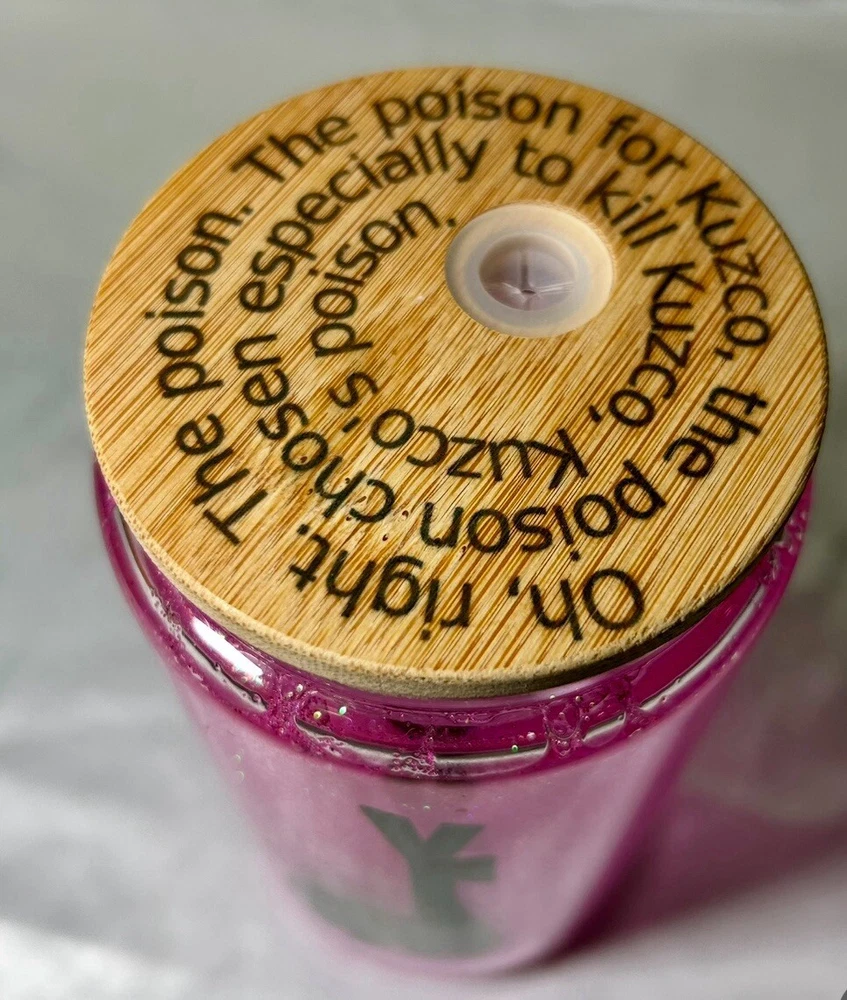 Oh, right. The poison. The poison for Kuzco, the poison chosen especially to kill Kuzco, Kuzco's poison.